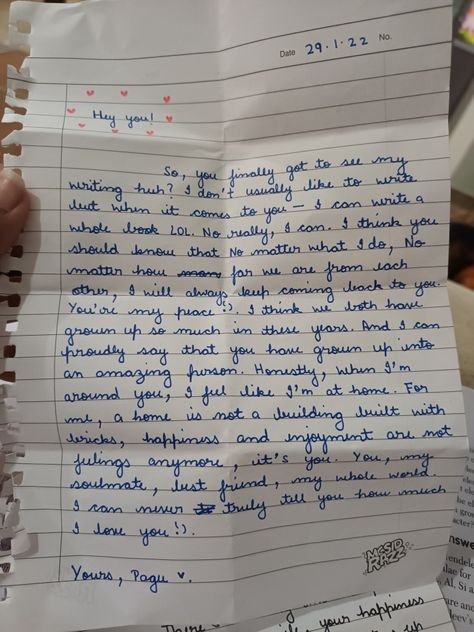 Date 29.1.22 No.
Hey you!
So, you finally got to see my
writing huh? I don't usually like to write
but when it comes to you – I can write a
whole book LOL. No really, I can. I think you
should know that No matter what I do, No
matter how far we are from each
other, I will always keep coming back to you.
You're my peace :). I think we both have
grown up so much in these years. And I can
proudly say that you have grown up into
an amazing person. Honestly, when I'm
around you, I feel like I'm at home. For
me, a home is not a building built with
bricks, happiness and enjoyment are not
feelings anymore, it's you. You, my
soulmate, best friend, my whole world.
I can never truly tell you how much
I love you :).
MCSID RAZZ
Yours, Pagu
There
your happiness